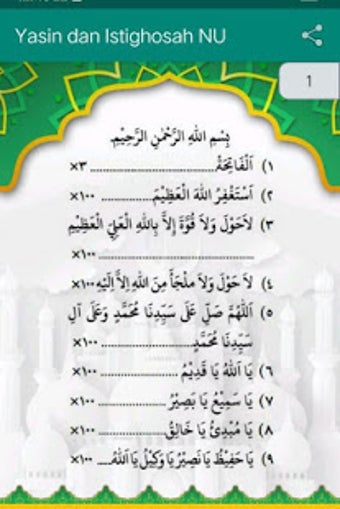 Yasin dan Istighosah NU
1
بِسْمِ اللهِ الرَّحْمٰنِ الرَّحِيْمِ
١) اَلْفَاتِحَةُ.................................. ×٣
٢) اَسْتَغْفِرُ اللهَ الْعَظِيْمَ................. ×١٠٠
٣) لاَحَوْلَ وَلاَ قُوَّةَ إِلاَّ بِاللهِ الْعَلِيِّ الْعَظِيْمِ
.......................................... ×١٠٠
٤) لاَ حَوْلَ وَلاَ مَلْجَأَ مِنَ اللهِ إِلاَّ إِلَيْهِ ×١٠٠
٥) اَللّٰهُمَّ صَلِّ عَلَى سَيِّدِنَا مُحَمَّدٍ وَعَلَى آلِ
سَيِّدِنَا مُحَمَّدٍ......................... ×١٠٠
٦) يَا اَللهُ يَا قَدِيْمُ...................... ×١٠٠
٧) يَا سَمِيْعُ يَا بَصِيْرُ................... ×١٠٠
٨) يَا مُبْدِئُ يَا خَالِقُ.................... ×١٠٠
٩) يَا حَفِيْظُ يَا نَصِيْرُ يَا وَكِيْلُ يَا اَللهُ.... ×١٠٠